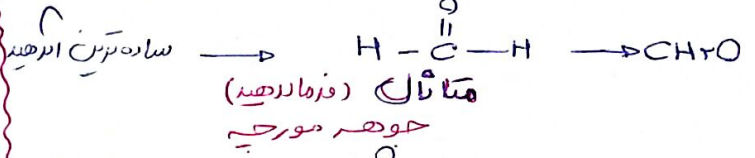 O
ساده ترین آلدهید → H - C - H → CH۲O
متانال (فرمالدهید)
جوهر مورچه
O